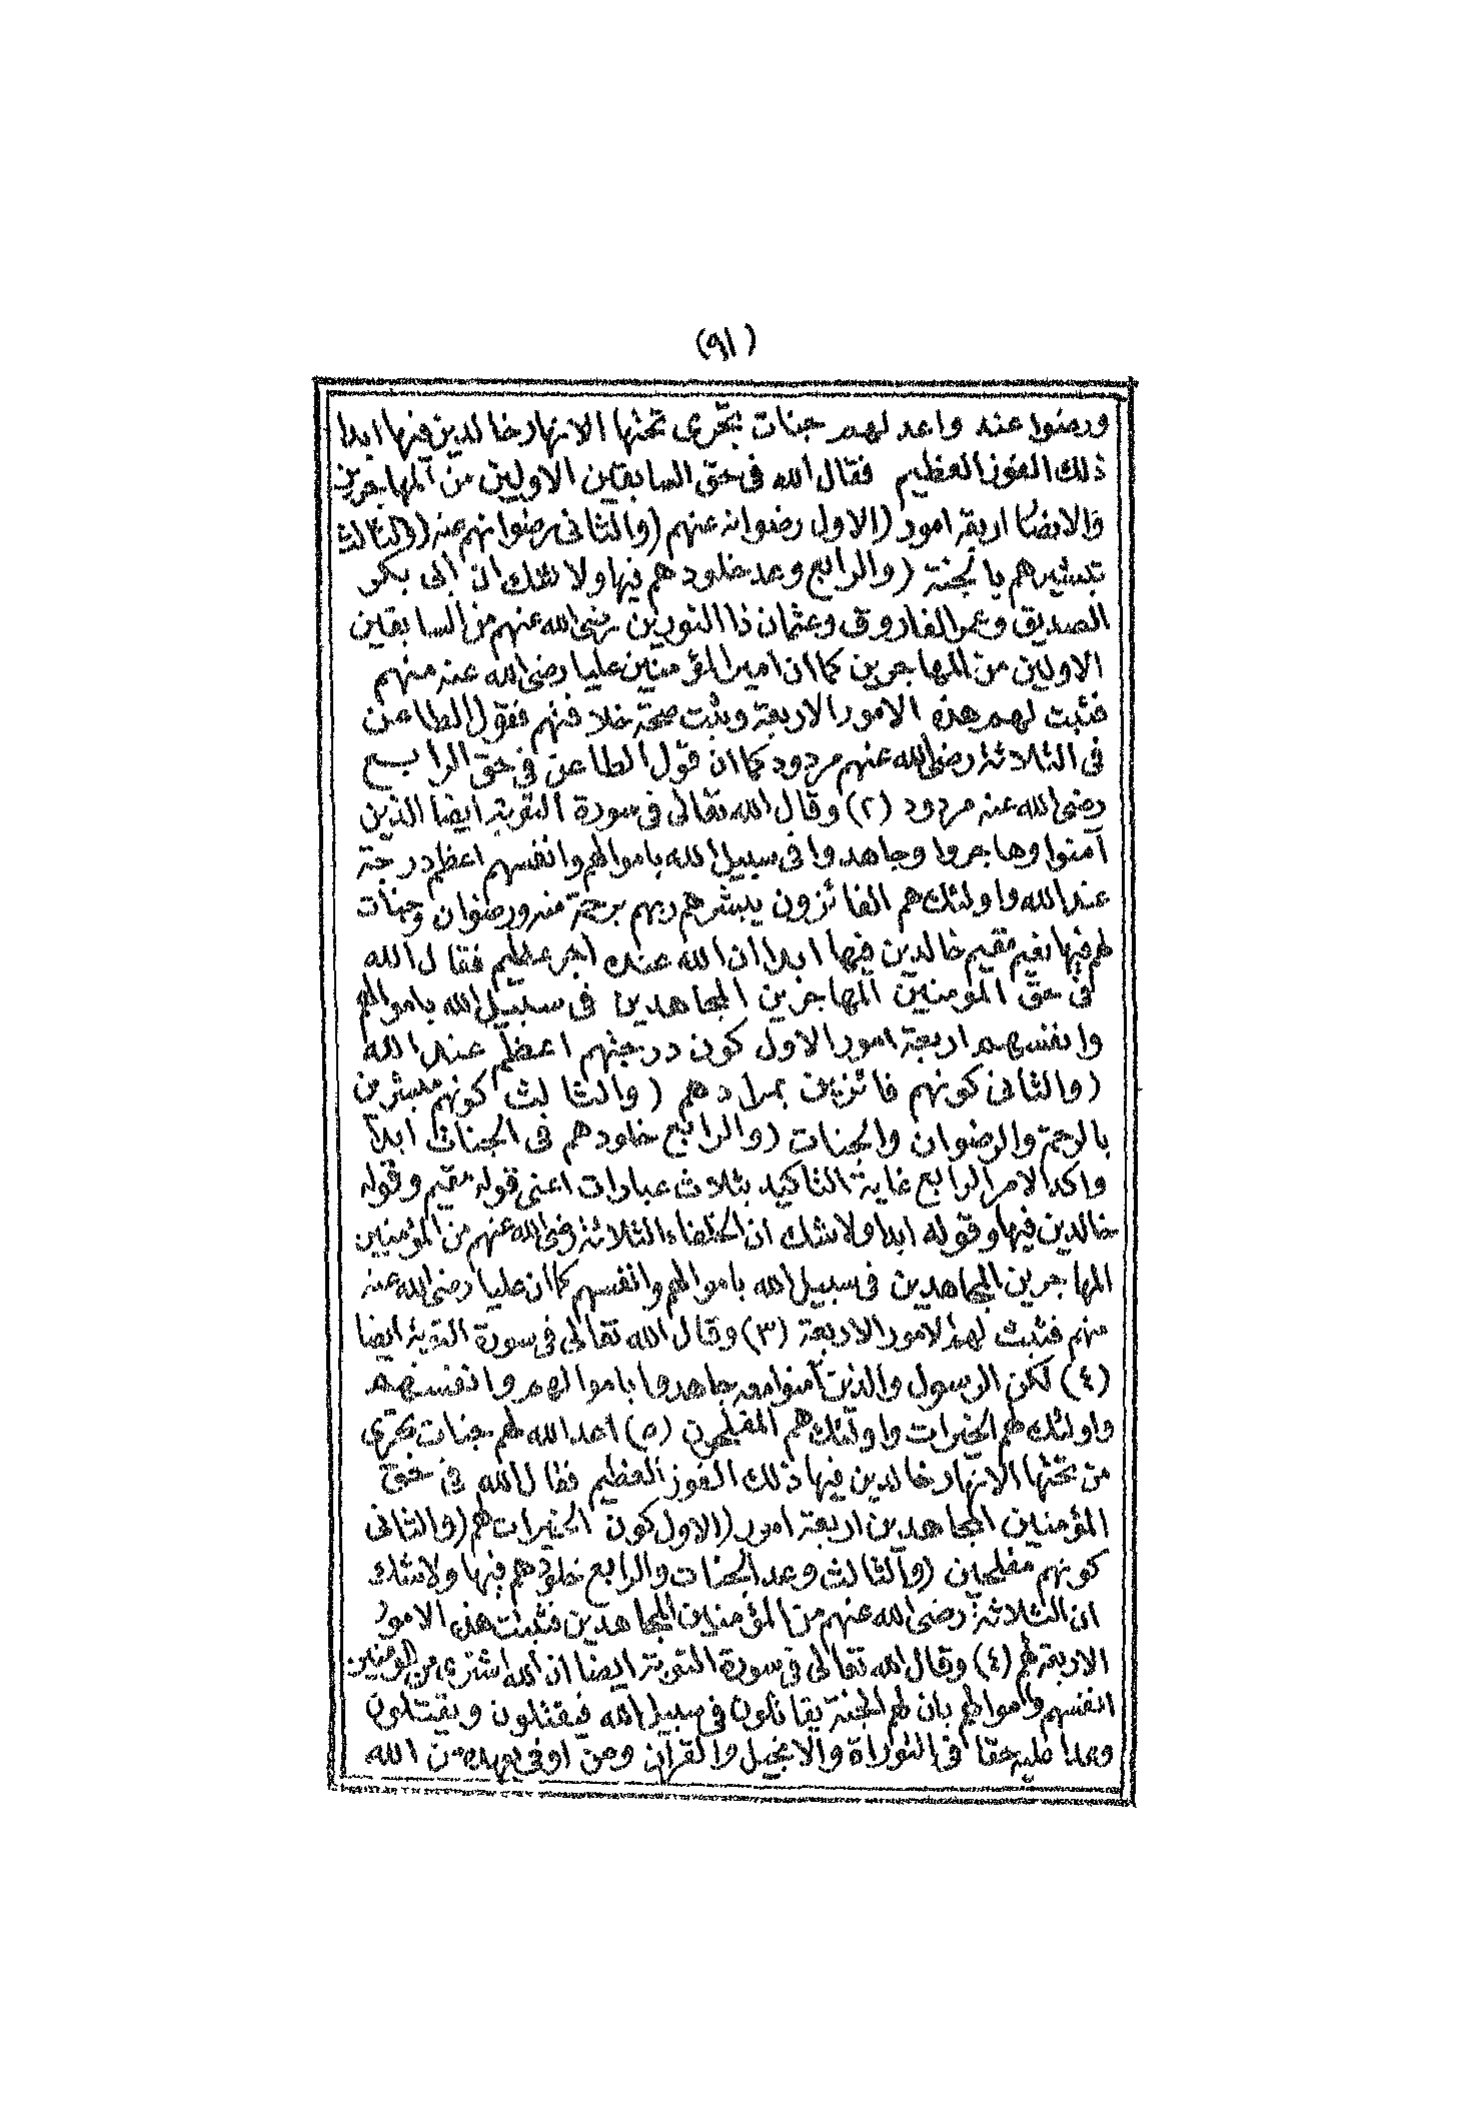 (٩١)
ورضوا عنه واعد لهم جنات تجرى تحتها الانهار خالدين فيها ابدا
ذلك الفوز العظيم فقال الله فى حق السابقين الاولين من المهاجرين
والانصار اربعة امور (الاول رضوانه عنهم (والثانى رضوانهم عنه (والثالث
تبشيرهم بالجنة (والرابع وعد خلودهم فيها ولا شك ان ابى بكر
الصديق وعمر الفاروق وعثمان ذا النورين رضى الله عنهم من السابقين
الاولين من المهاجرين كما ان امير المؤمنين عليا رضى الله عنه منهم
فثبت لهم هذه الامور الاربعة ويثبت صحة خلافتهم فقول الطاعن
فى الثلاثة رضى الله عنهم مردود كما ان قول الطاعن فى حق الرابع
رضى الله عنه مردود (٢) وقال الله تعالى فى سورة التوبة ايضا الذين
آمنوا وهاجروا وجاهدوا فى سبيل الله باموالهم وانفسهم اعظم درجة
عند الله واولئك هم الفائزون يبشرهم ربهم برحمة منه ورضوان وجنات
لهم فيها نعيم مقيم خالدين فيها ابدا ان الله عنده اجر عظيم فقال الله
فى حق المؤمنين المهاجرين المجاهدين فى سبيل الله باموالهم
وانفسهم اربعة امور الاول كون درجتهم اعظم عند الله
(والثانى كونهم فائزين بمرادهم (والثالث كونهم مبشرين
بالرحمة والرضوان والجنات (والرابع خلودهم فى الجنات ابدا
واكد الامر الرابع غاية التاكيد بثلاث عبارات اعنى قوله مقيم وقوله
خالدين فيها وقوله ابدا ولا شك ان الخلفاء الثلاثة رضى الله عنهم من المؤمنين
المهاجرين المجاهدين فى سبيل الله باموالهم وانفسهم كما ان عليا رضى الله عنه
منهم فثبت لهم الامور الاربعة (٣) وقال الله تعالى فى سورة التوبة ايضا
(٤) لكن الرسول والذين آمنوا معه جاهدوا باموالهم وانفسهم
واولئك لهم الخيرات واولئك هم المفلحون (٥) اعد الله لهم جنات تجرى
من تحتها الانهار خالدين فيها ذلك الفوز العظيم فقال الله فى حق
المؤمنين المجاهدين اربعة امور (الاول كون الخيرات لهم (والثانى
كونهم مفلحين (والثالث وعد الجنات والرابع خلودهم فيها ولا شك
ان الثلاثة رضى الله عنهم من المؤمنين المجاهدين فثبت هذه الامور
الاربعة لهم (٤) وقال الله تعالى فى سورة التوبة ايضا ان الله اشترى من المؤمنين
انفسهم واموالهم بان لهم الجنة يقاتلون فى سبيل الله فيقتلون ويقتلون
وعدا عليه حقا فى التوراة والانجيل والقرآن ومن اوفى بعهده من الله